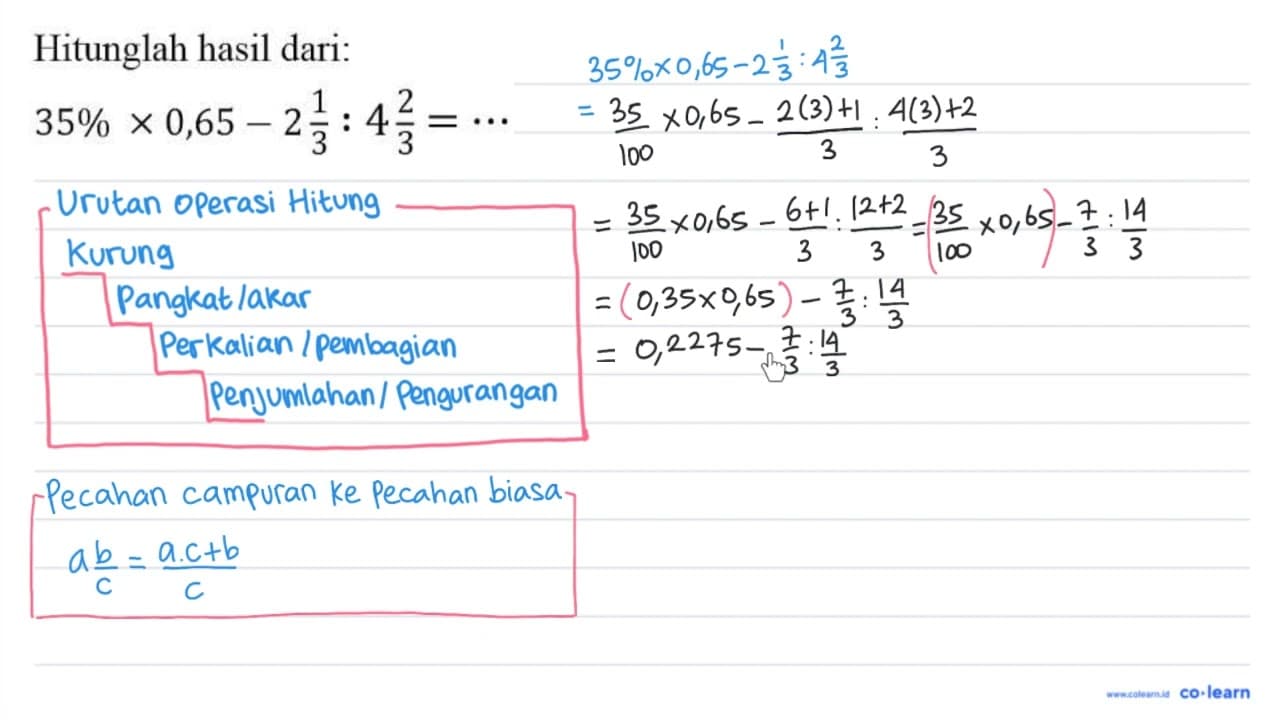 Hitunglah hasil dari:
35% × 0,65 − 2 1/3 : 4 2/3 = ⋯
35% × 0,65 − 2 1/3 : 4 2/3
= 35/100 × 0,65 − 2(3)+1/3 : 4(3)+2/3
= 35/100 × 0,65 − 6+1/3 : 12+2/3 = (35/100 × 0,65) − 7/3 : 14/3
= (0,35 × 0,65) − 7/3 : 14/3
= 0,2275 − 7/3 : 14/3
Urutan Operasi Hitung
Kurung
Pangkat/akar
Perkalian/pembagian
Penjumlahan/Pengurangan
Pecahan campuran ke Pecahan biasa
a b/c = a.c+b/c
www.colearn.id co·learn